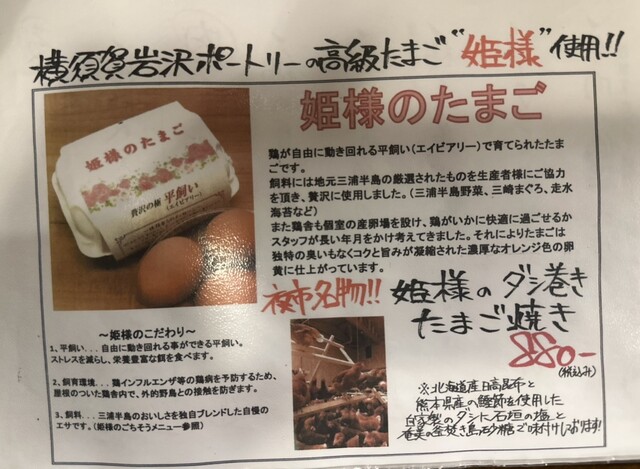 横須賀岩沢ポートリーの高級たまご"姫様"使用!!
姫様のたまご
姫様のたまご
贅沢の極 平飼い
(エイビアリー)
鶏が自由に動き回れる平飼い（エイビアリー）で育てられたたま
ごです。
飼料には地元三浦半島の厳選されたものを生産者様にご協力
を頂き、贅沢に使用しました。（三浦半島野菜、三崎まぐろ、走水
海苔など）
また鶏舎も個室の産卵場を設け、鶏がいかに快適に過ごせるか
スタッフが長い年月をかけ考えてきました。それによりたまごは
独特の臭いもなくコクと旨みが凝縮された濃厚なオレンジ色の卵
黄に仕上がっています。
夜市名物!!
姫様のダシ巻き
たまご焼き
880-
(税込み)
～姫様のこだわり～
1、平飼い...自由に動き回れる事ができる平飼い。
ストレスを減らし、栄養豊富な餌を食べます。
2、飼育環境...鶏インフルエンザ等の鶏病を予防するため、
屋根のついた鶏舎内で、外的野鳥との接触を防ぎます。
3、飼料...三浦半島のおいしさを独自ブレンドした自慢の
エサです。（姫様のごちそうメニュー参照）
※北海道産日高昆布と
熊本県産の鰹節を使用した
自家製のダシに石垣の塩と
奄美の釜焚き島砂糖で味付けしております!